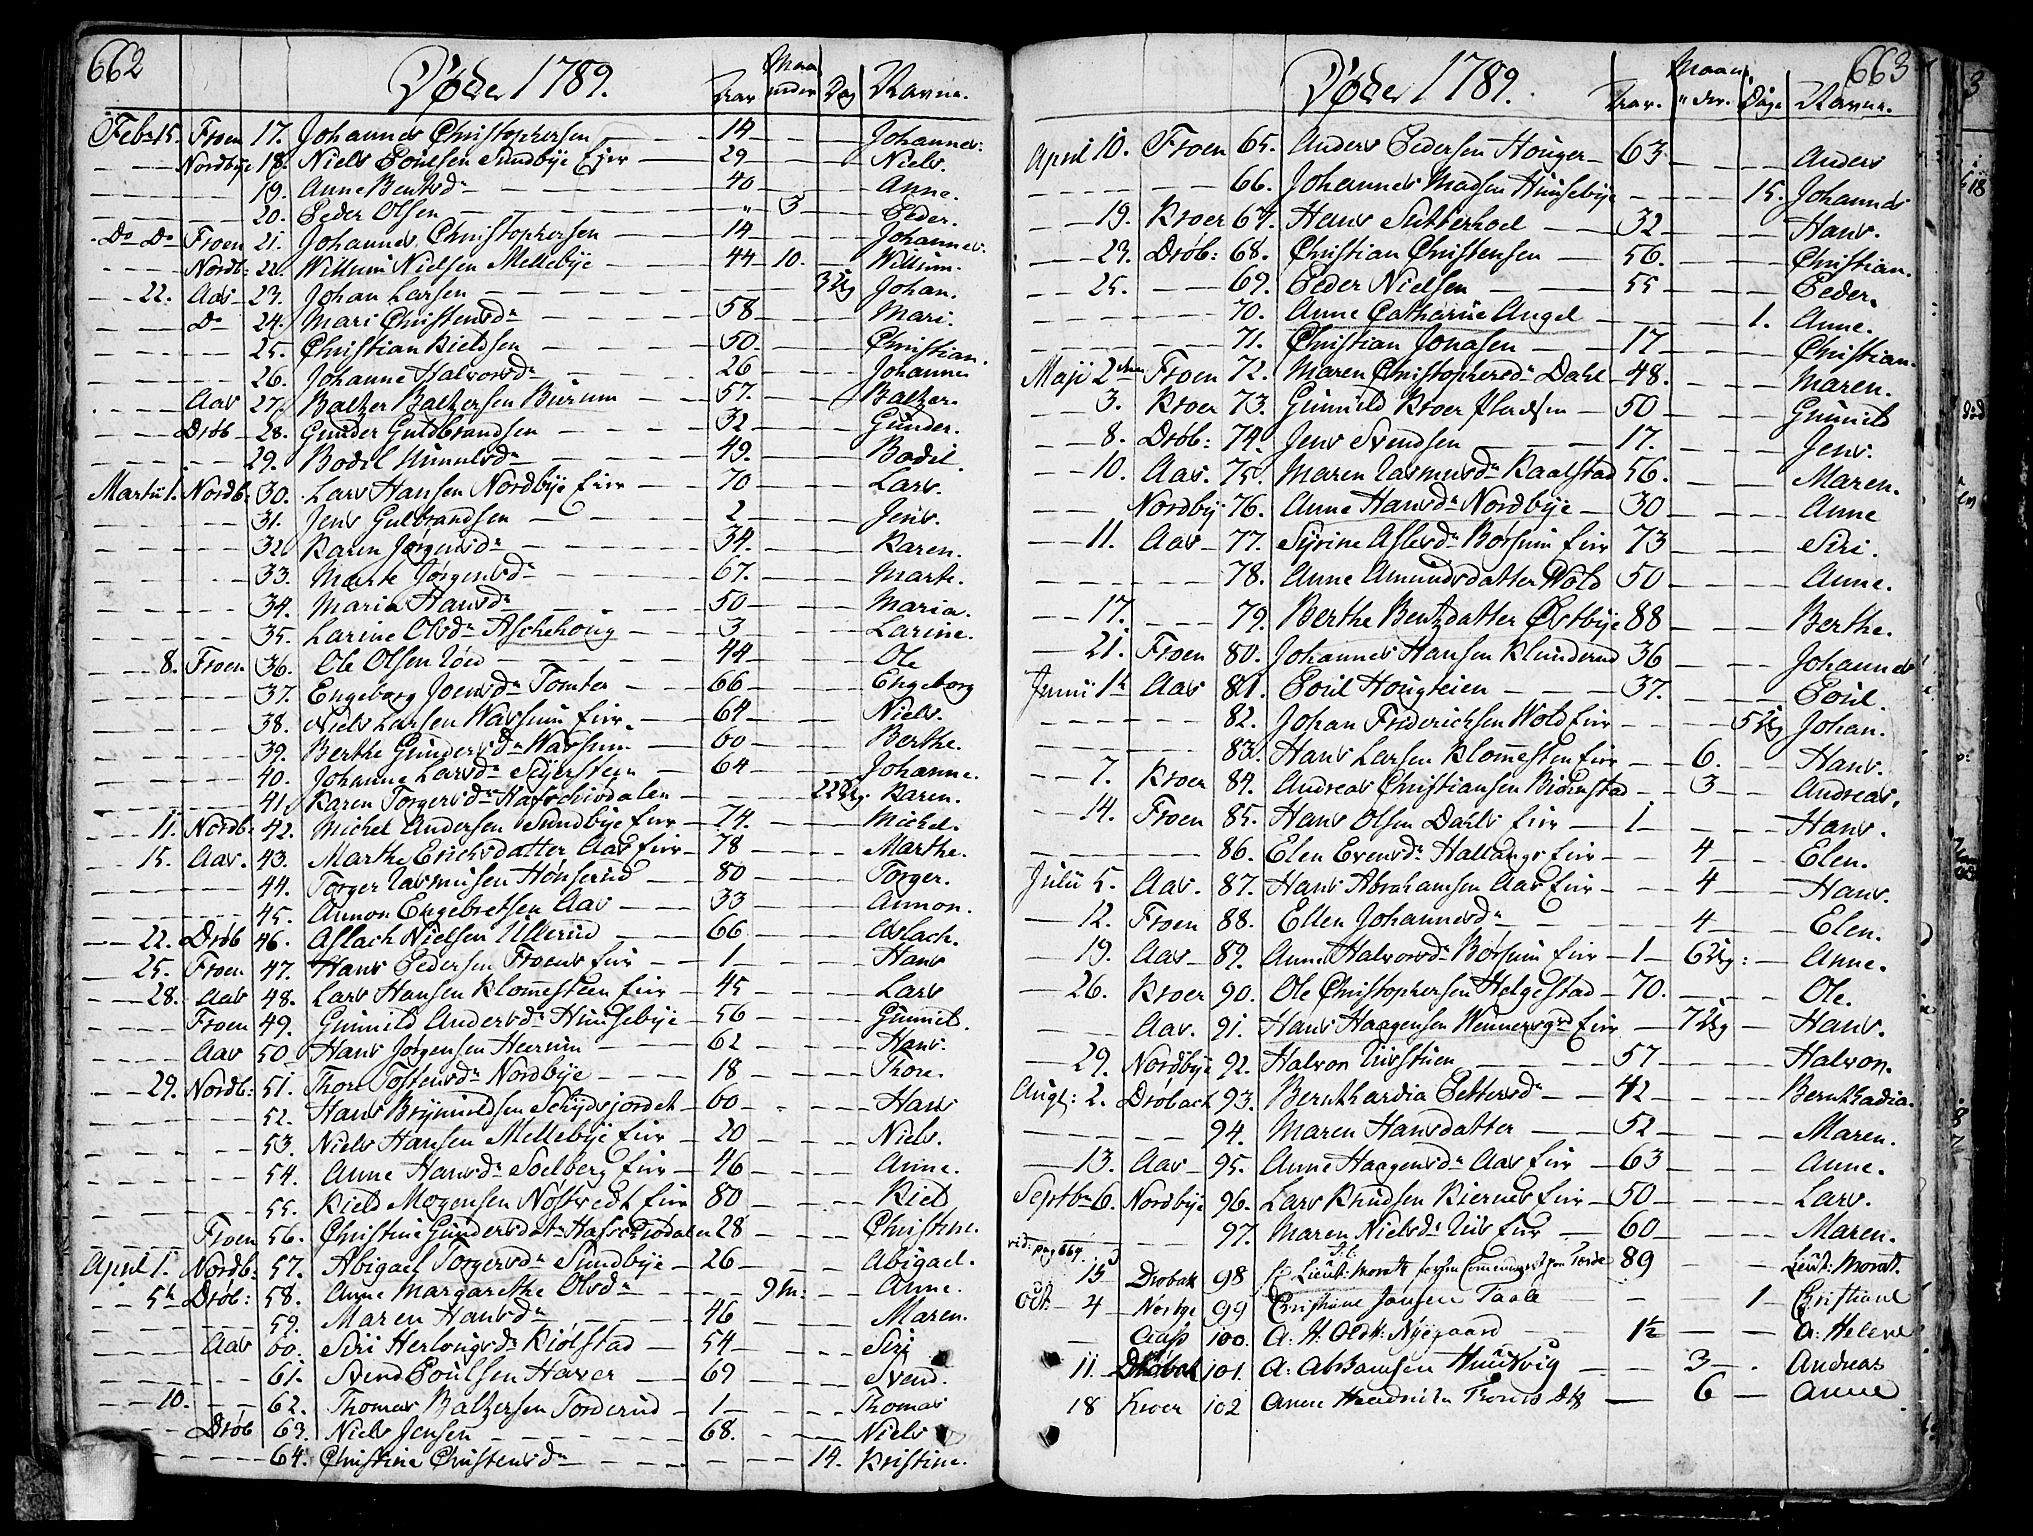 662
Døde 1789.
Aar Maaneder Dag Navne.
Febr 15. Froen 17. Johannes Christophersen — 14 — Johannes:
Nordbye 18. Niels Poulsen Sundbye Ejer — 29 — Niels.
19. Anne Bentsdr — 40 — Anne.
20. Peder Olsen — " 3 — Peder.
Do Do Froen 21. Johannes Christophersen — 14 — Johannes.
Nordb: 22. Willum Nielsen Mellebye — 44 10. — Willum.
22. Aas 23. Johan Larsen — 3 Ug Johan.
Do 24. Mari Christensdr — 58 — Mari.
25. Christian Kieldsen — 50 — Christian.
26. Johanne Halvorsdr — 26 — Johanne
Aas 27. Baltzer Baltzersen Burum — 57. — Baltzer.
Drøb 28. Gunder Guldbrandsen — 32 — Gunder.
29. Bodil — 49. — Bodil.
Martii 1. Nordb: 30. Lars Hansen Nordbye Eier — 70 — Lars.
31. Jens Gulbrandsen — 2 — Jens.
32 Karen Jørgensdr — 34. — Karen.
33. Marte Jørgensdr — 67. — Marte.
34. Maria Hansdr — 50 — Maria.
35. Larine Olsdr Aschehoug — 3 — Larine.
8. Froen 36. Ole Olsen — 44 — Ole
37. Engeborg Joensdr Tomter — 66 — Engeborg
38. Niels Larsen Wassum Eier. — 64 — Niels.
39. Berthe Gundersdr Wassum — 60 — Berthe.
40. Johanne Larsdr Seyersteen — 64 — Johanne.
41. Karen Torgersdr Hafschiodalen — 22 Ug. Karen.
11. Nordb: 42. Michel Andersen Sundbye Eier — 74. — Michel.
15. Aas. 43. Marthe Erichsdatter Aas Eier — 78 — Marthe.
44. Torger Rasmusen Hønserud — 80 — Torger.
45. Anmon Engebretsen Aas — 33 — Anmon.
22. Drøb 46. Aslach Nielsen Ullerud — 66 — Aslach.
25. Froen 47. Hans Pedersen Froens Eier — 1 — Hans
28. Aas 48. Lars Hansen Klommesteen Eier — 45 — Lars
Froen 49. Gunnild Andersdr Hunsebye — 56 — Gunnil.
Aas 50. Hans Jørgensen Heerum — 62 — Hans.
29. Nordb: 51. Thore Tostensdr Nordbye — 18 — Thore.
52. Hans Brynnildsen — 60 — Hans
53. Niels Hansen Mellebye Eier — 20 — Niels.
54. Anne Hansdr Soelberg Eier — 46 — Anne.
55. Kield Mogensen Nøstvedt Eier 80 — Kiel
Froen 56. Christine Gundersdatr Hafschiodalen 28 — Christine.
April 1. Nordb: 57. Abigael Torgersdr Sundbye — 26 — Abigael.
5te Drøb: 58. Anne Margarethe Olsdr — 9 m: — Anne.
59. Maren Hansdr — 46 — Maren.
Aas 60. Siri Herlougsdr Kiølstad — 54 — Siri
61. Svend Poulsen Haver — 69 — Svend.
10. 62. Thomas Baltzersen Torderud — 1 — Thomas
Drøb 63. Niels Jensen — 68. — Niels
64. Christine Christensdr — 14. Kristine.
663
Døde 1789.
Aar. Maaneder. Dage Navne.
April 10. Froen 65. Anders Pedersen Houger — 63 — Anders
66. Johannes Madsen Hunsebye — 15. Johannes
19. Kroer 67. Hans Sætterhoel — 32 — Hans.
23. Drøb: 68. Christian Christensen — 56. — Christian.
25. 69. Peder Nielsen — 55 — Peder.
70. Anne Catharine Angel — 1. Anne.
71. Christian Jonasen — 17 — Christian.
Maji 2den Froen 72. Maren Christophersdr Dahl — 48. — Maren.
3. Kroer 73. Gunnild Kroer — 50 — Gunnild
8. Drøb: 74. Jens Svendsen — 17. — Jens.
10. Aas. 75. Maren Rasmusdr Kaalstad 56. — Maren.
Nordby 76. Anne Hansdr Nordbye — 30 — Anne
11. Aas 77. Syrine Aslesdr Børsum Eier 73 — Siri.
78. Anne Amundsdatter Wold 50 — Anne.
17. 79. Berthe Bentsdatter Østbye 88 — Berthe.
21. Froen 80. Johannes Hansen Klunderud 36 — Johannes
Junii 1te Aas 81. Poul Hougteien — 37. — Poul.
82. Johan Friderichsen Wold Eier — 5 Ug Johan.
83. Hans Larsen Klommesteen Eier — 6. — Hans.
7. Kroer 84. Andreas Christiansen Biørnstad — 3 — Andreas.
14. Froen 85. Hans Olsen Dahls Eier — 1 — Hans.
86. Elen Evensdr Hallangs Eier — 4 — Elen.
Julii 5. Aas. 87. Hans Abrahamsen Aas Eier — 4 — Hans.
12. Froen 88. Ellen Johannesdr — 4 — Elen.
19. Aas 89. Anne Halvorsdr Børsum Eier — 1 — 6 Ug: — Anne.
26. Kroer 90. Ole Christophersen Helgestad — 70. — Ole.
Aas. 91. Hans Haagensen Wennersgrd Eier — 7 Ug — Hans.
29. Nordbye 92. Halvor — 57 — Halvon.
Augt: 2. Drøbach 93. Bernthardia Pettersdr — 42 — Bernthadia.
94. Maren Hansdatter — 52 — Maren.
13. Aas 95. Anne Haagensdr Aas Eier — 63 — Anne.
Septbr 6. Nordbye 96. Lars Knudsen Kiernes Eier — 50 — Lars.
97. Maren Nielsdr Riis Eier — 60 — Maren.
vid: pag 664
13 Drøbak 98 Lieut: Moratz 89 — Lieut: Moratz.
Octr 4 Norbye 99 Christiane Jansen Taale — 1 — Christiane
Aass 100. A: H. Oldt: Nyegaard — 1½ — A: Helene
11 Drøbak 101. A: Abramsen Huusvig — 3 — Andreas
18 Kroer 102 Anne — 6 — Anne